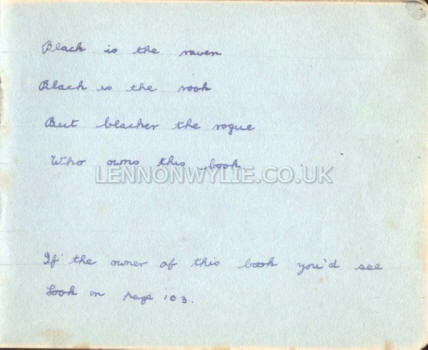 Black is the raven
Black is the rook
But blacker the rogue
Who owns this book
LENNONWYLIE.CO.UK
If the owner of this book you'd see
Look on page 103.